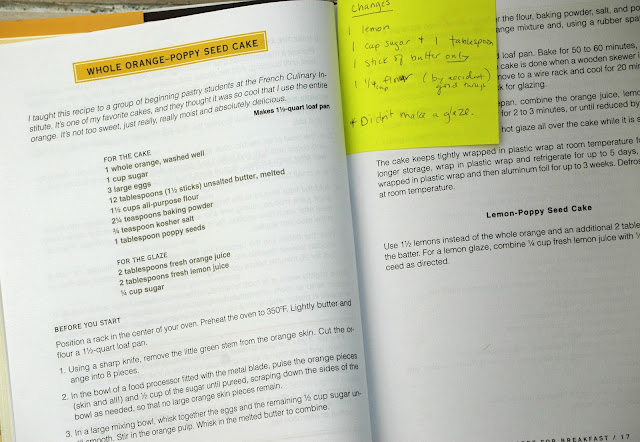 WHOLE ORANGE-POPPY SEED CAKE
I taught this recipe to a group of beginning pastry students at the French Culinary In-
stitute. It's one of my favorite cakes, and they thought it was so cool that I use the entire
orange. It's not too sweet, just really, really moist and absolutely delicious.
Makes 1½-quart loaf pan
FOR THE CAKE
1 whole orange, washed well
1 cup sugar
3 large eggs
12 tablespoons (1½ sticks) unsalted butter, melted
1½ cups all-purpose flour
2¼ teaspoons baking powder
¾ teaspoon kosher salt
1 tablespoon poppy seeds
FOR THE GLAZE
2 tablespoons fresh orange juice
2 tablespoons fresh lemon juice
¼ cup sugar
BEFORE YOU START
Position a rack in the center of your oven. Preheat the oven to 350°F. Lightly butter and
flour a 1½-quart loaf pan.
1. Using a sharp knife, remove the little green stem from the orange skin. Cut the or-
ange into 8 pieces.
2. In the bowl of a food processor fitted with the metal blade, pulse the orange pieces
(skin and all!) and ½ cup of the sugar until pureed, scraping down the sides of the
bowl as needed, so that no large orange skin pieces remain.
3. In a large mixing bowl, whisk together the eggs and the remaining ½ cup sugar un-
smooth. Stir in the orange pulp. Whisk in the melted butter to combine.
Changes
1 lemon
1 cup sugar + 1 tablespoon
1 stick of butter only
1 ¼ flour (by accident)
* Didn't make a glaze.
the flour, baking powder, salt, and
ange mixture and, using a rubber
loaf pan. Bake for 50 to 60 minutes,
cake is done when a wooden skewer
move to a wire rack and cool for 20
for glazing.
pan, combine the orange juice,
for 2 to 3 minutes, or until reduced
hot glaze all over the cake while it is
The cake keeps tightly wrapped in plastic wrap at room temperature
longer storage, wrap in plastic wrap and refrigerate for up to 5 days,
wrapped in plastic wrap and then aluminum foil for up to 3 weeks.
at room temperature.
Lemon-Poppy Seed Cake
Use 1½ lemons instead of the whole orange and an additional 2
the batter. For a lemon glaze, combine ¼ cup fresh lemon juice with
ceed as directed.
FOR BREAKFAST / 17